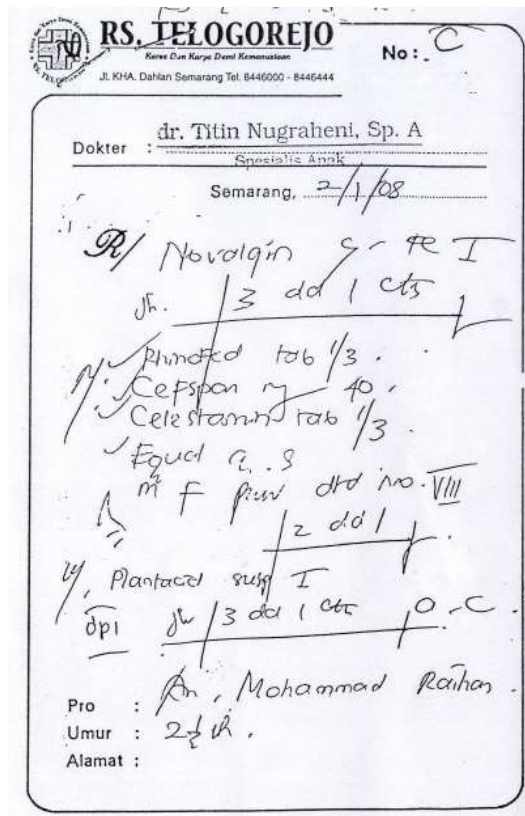 RS. TELOGOREJO
Karsa Dan Karya Demi Kemanusiaan
Jl. KHA. Dahlan Semarang Tel. 8446000 - 8446444
No : C
Dokter : dr. Titin Nugraheni, Sp. A
Spesialis Anak
Semarang, 2/1/08
R/ Novalgin I
3 dd 1 cts
tab 1/3
Cefspan 40
Celestamin tab 1/3
Equal q.s
m f pulv dtd no. VIII
2 dd 1
R/ Plantacid susp I
3 dd 1 cts
Pro : An, Mohammad Raihan
Umur : 2 1/2 th.
Alamat :